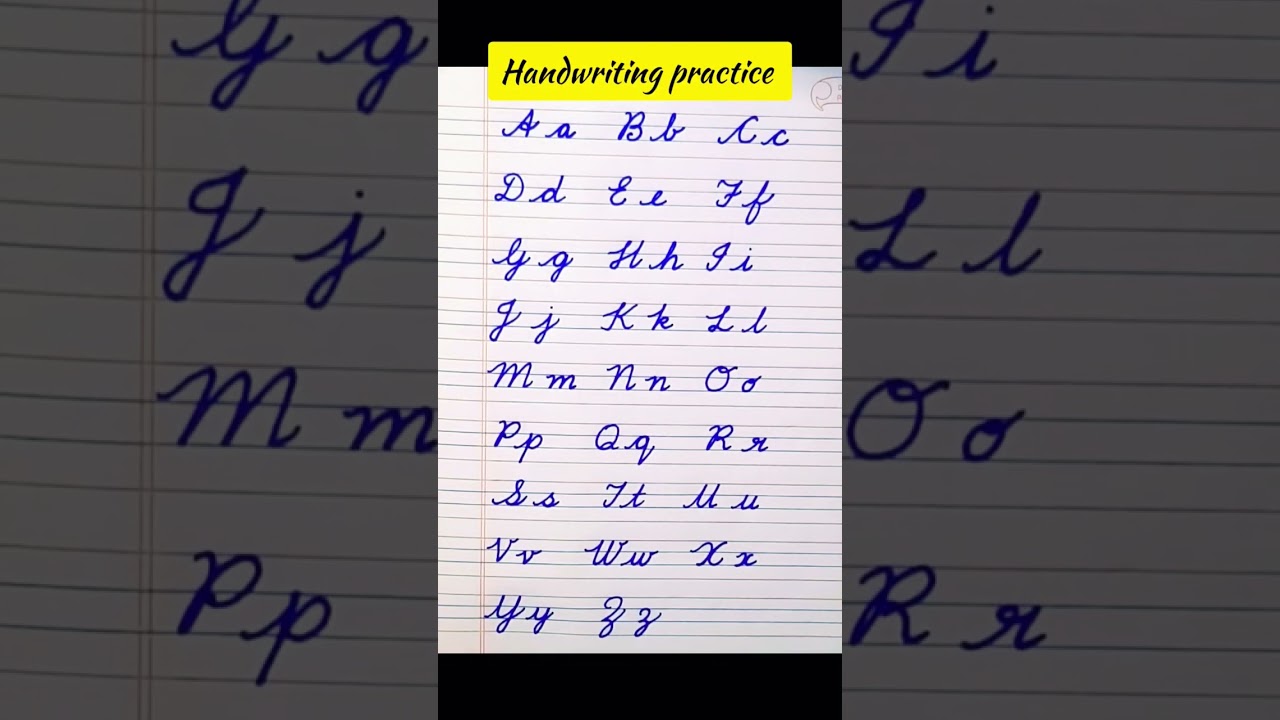 Handwriting practice
A a B b C c
D d E e F f
G g H h I i
J j K k L l
M m N n O o
P p Q q R r
S s T t U u
V v W w X x
Y y Z z